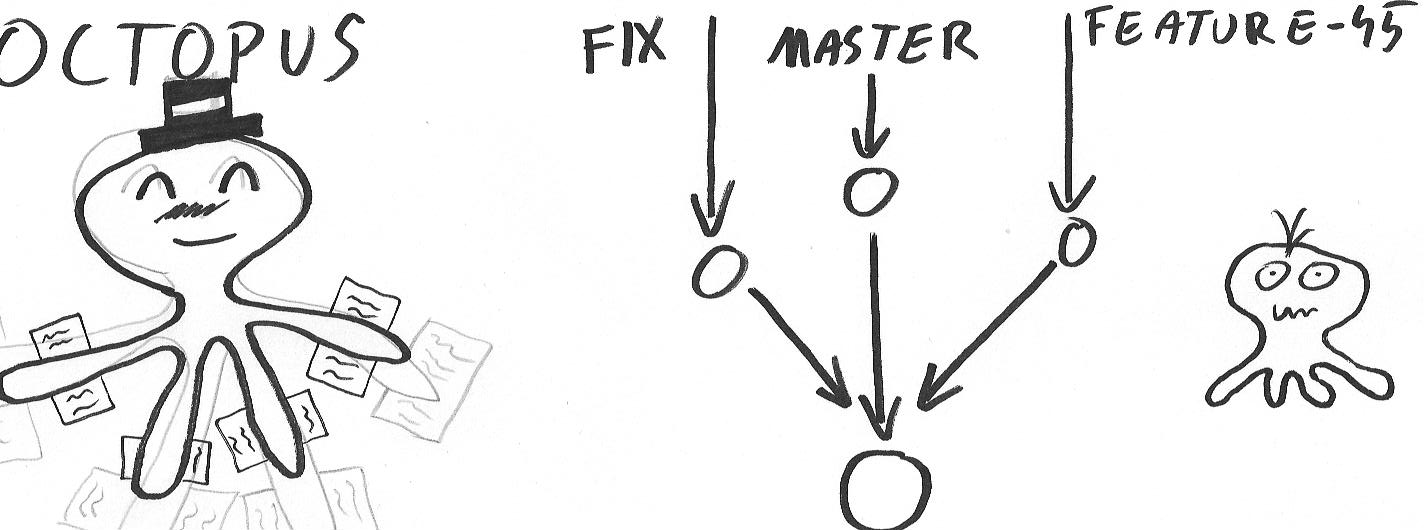 OCTOPUS
FIX
MASTER
FEATURE-45